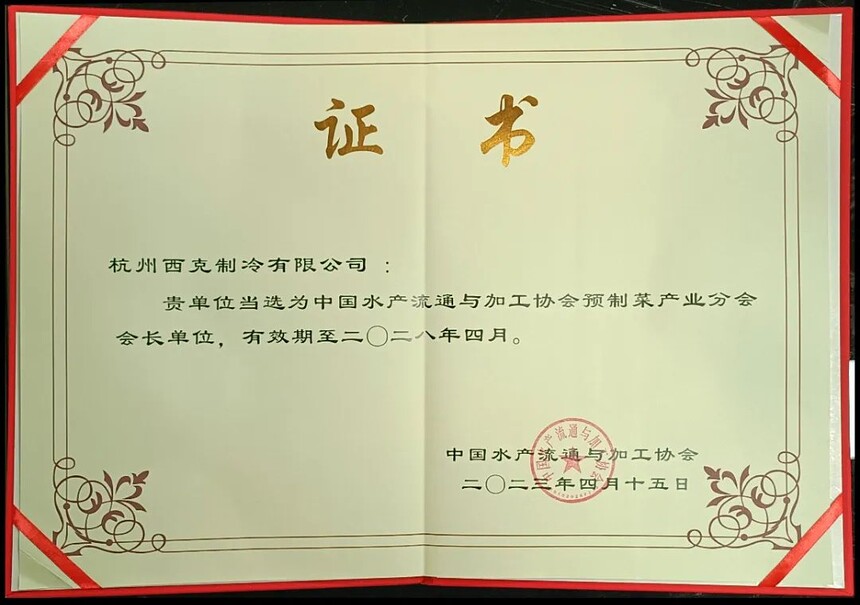 证书
杭州西克制冷有限公司：
贵单位当选为中国水产流通与加工协会预制菜产业分会
会长单位，有效期至二〇二八年四月。
中国水产流通与加工协会
二〇二三年四月十五日
中国水产流通与加工协会